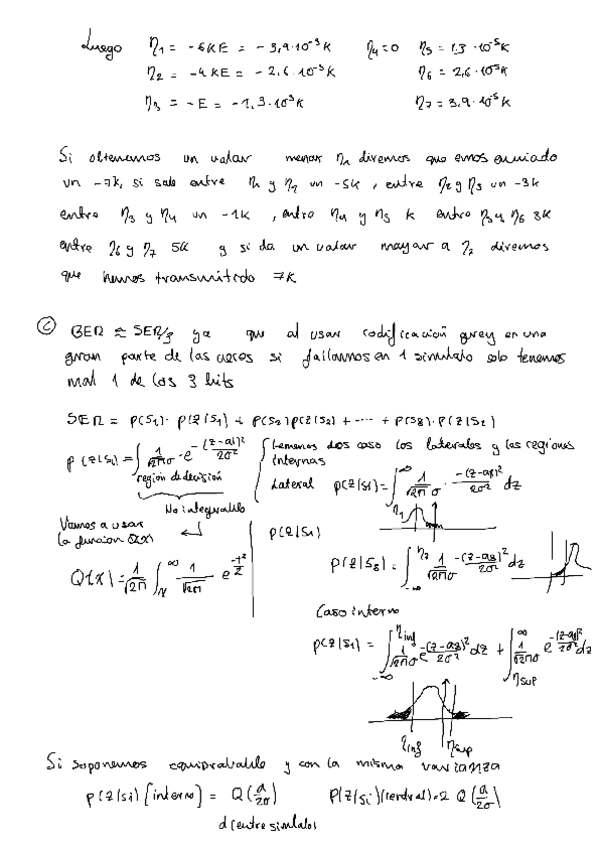 Luego η1 = -6KE = -3,9·10^-3 K η4=0 η5 = 1.3·10^-5 K
η2 = -4KE = -2,6·10^-3 K η6 = 2,6·10^-5 K
η3 = -E = -1,3·10^-3 K η7 = 3,9·10^-5 K
Si obtenemos un valor menor η1 diremos que emos enviado
un -7k, si sale entre η1 y η2 un -5k, entre η2 y η3 un -3k
entre η3 y η4 un -1k, entre η4 y η5 k entre η5 y η6 3k
entre η6 y η7 5k y si da un valor mayor a η7 diremos
que hemos transmitido 7k
c BER ≈ SER/3 ya que al usar codificacion grey en una
gran parte de las veces si fallamos en 1 simbolo solo tenemos
mal 1 de los 3 bits
SER = P(S1)· P(z|S1) + P(S2)P(z|S2) + ---- + P(S8)·P(z|S2)
P(z|Si) = ∫ 1/√2π ·e^-(z-ai)²/2σ² tenemos dos caso los laterales y las regiones
region de decisión internas
No integrable Lateral P(z|Si) = ∫η1^∞ 1/√2πσ · -(z-ai)²/2σ² dz
Vamos a usar
la funcion Q(x) P(z|S1)
Q(x) = 1/√2π ∫x^∞ 1/√2π e^-t²/2 P(z|S8) = ∫-∞^η7 1/√2πσ -(z-a8)²/2σ² dz
Caso interno
P(z|S1) = ∫-∞^ηinf 1/√2πσ e^-(z-a8)²/2σ² dz + ∫ηsup^∞ 1/√2πσ e^-(z-a)²/2σ² dz
ηinf ηsup
Si soponemos equiprobable y con la misma varianza
P(z|Si) [interno] = Q(a/2σ) P(z|Si) = 2 Q(a/2σ)
d(entre simbolos